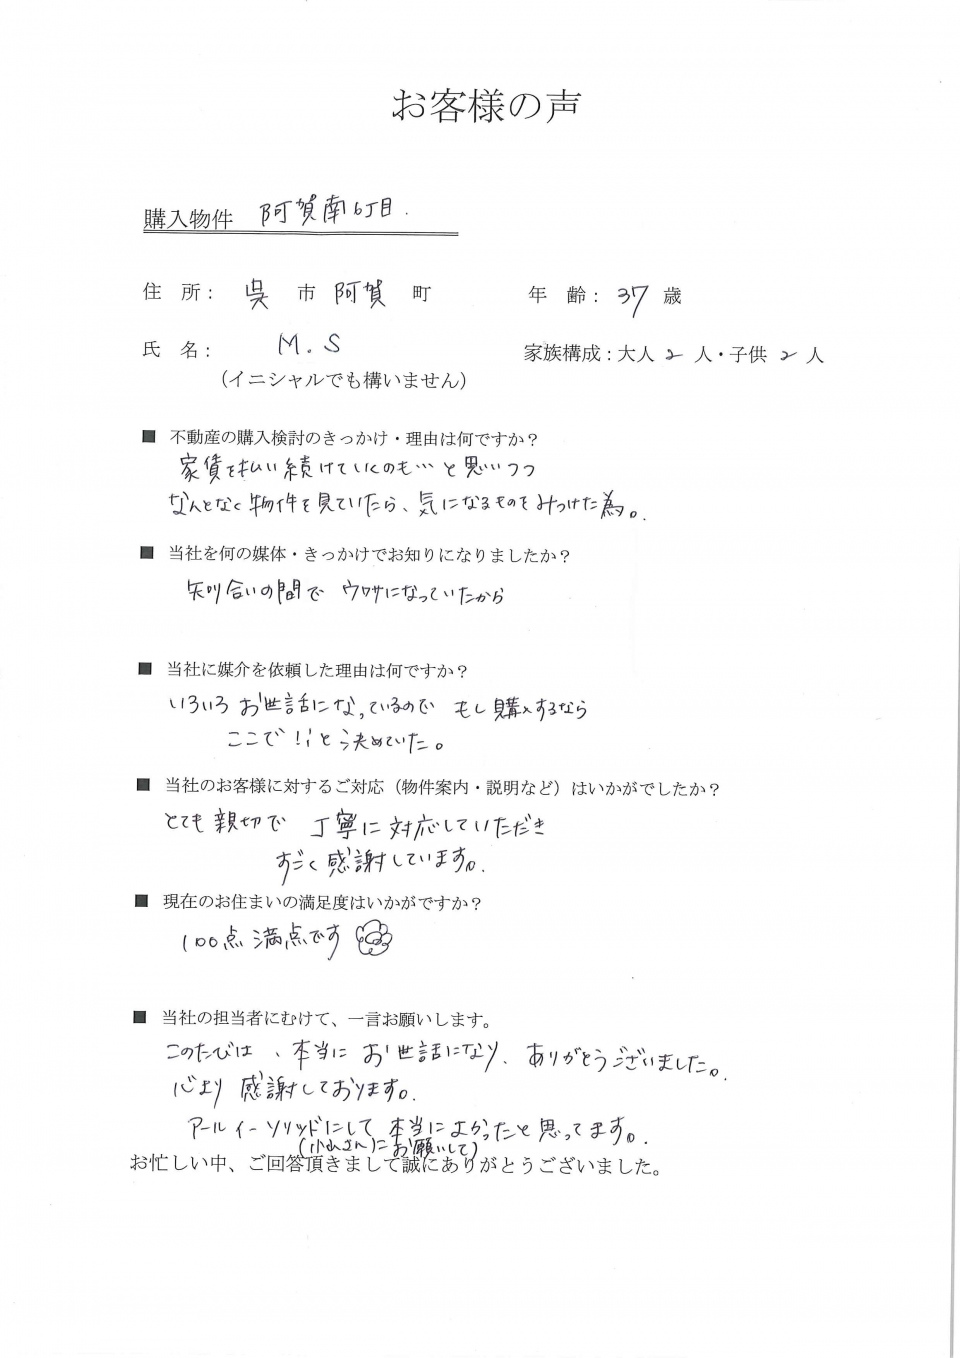 お客様の声
購入物件 阿賀南6丁目.
住 所： 呉 市 阿賀 町 年 齢：37 歳
氏 名： M.S 家族構成：大人 2 人・子供 2 人
（イニシャルでも構いません）
■ 不動産の購入検討のきっかけ・理由は何ですか？
家賃を払い続けていくのも…と思いつつ
なんとなく物件を見ていたら、気になるものをみつけた為。
■ 当社を何の媒体・きっかけでお知りになりましたか？
知り合いの間で ウワサになっていたから
■ 当社に媒介を依頼した理由は何ですか？
いろいろ お世話になっているので もし購入するなら
ここで!!と決めていた。
■ 当社のお客様に対するご対応（物件案内・説明など）はいかがでしたか？
とても親切で 丁寧に対応していただき
すごく感謝しています。
■ 現在のお住まいの満足度はいかがですか？
100点満点です
■ 当社の担当者にむけて、一言お願いします。
このたびは、本当に お世話になり、ありがとうございました。
心より 感謝しております。
アールイーソリッドにして 本当によかったと思ってます。
(小山さんにお願いして)
お忙しい中、ご回答頂きまして誠にありがとうございました。